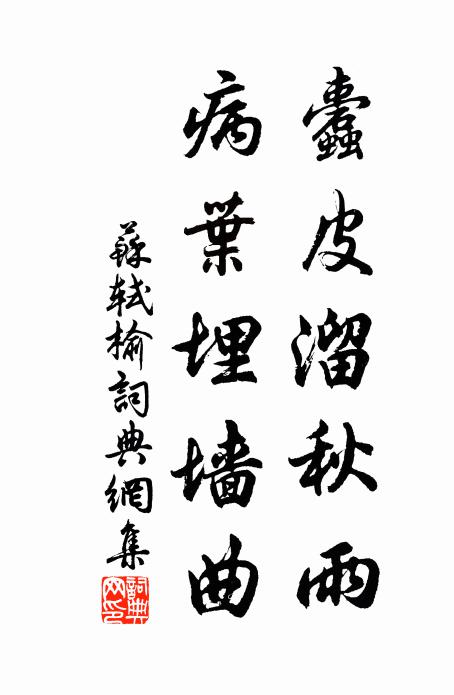 蠹皮溜秋雨
病葉埋墻曲
蘇軾榆詞典網集
詞典網印